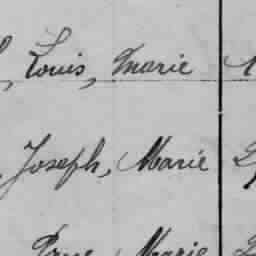 , Louis, Marie
Joseph, Marie
Marie